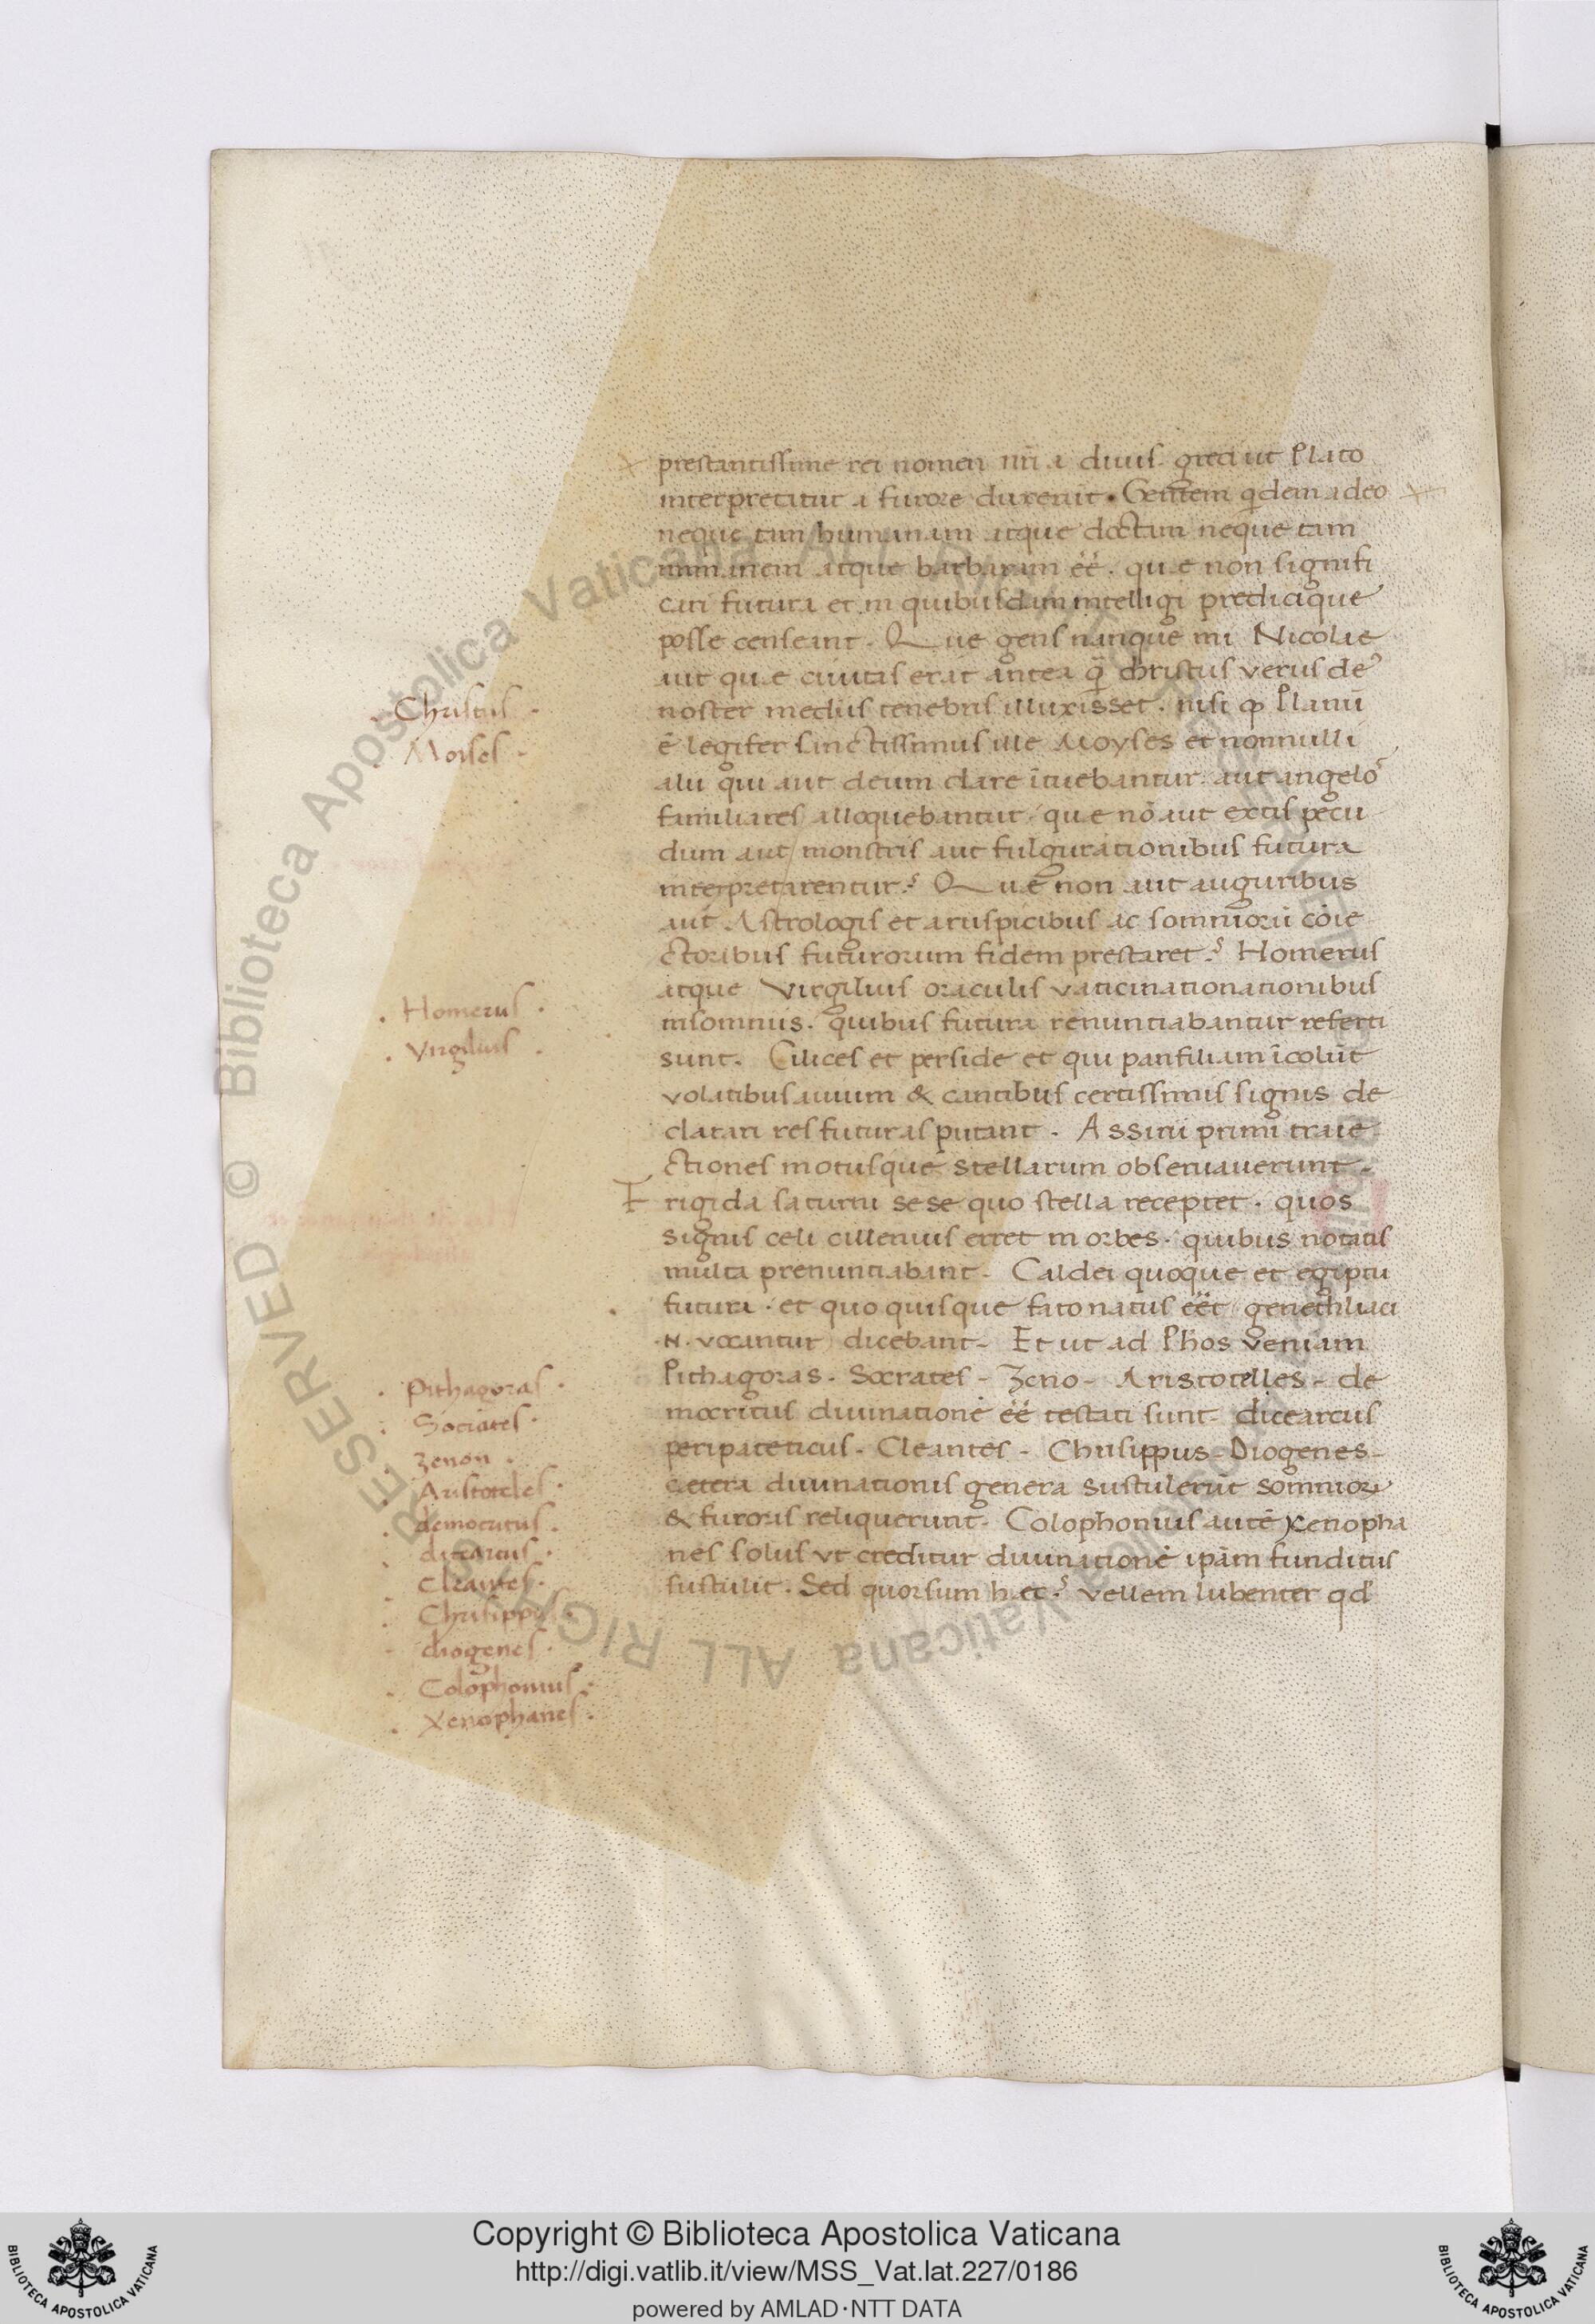 prestantissime rei nomen nrī a diuis. greci ut Plato
interpretatur a furore duxerūt. Gentem q̄dem adeo
neque tam humanam atque doctam neque tam
immanem atque barbaram ēē. que non signifi
cari futura et in quibusdam intelligi predicique
posse censeant. Que gens nanque mi Nicolae
aut que ciuitas erat antea q̄ christus verus de9
noster mediis tenebris illuxisset. nisi
ē legifer sanctissimus ille Moyses et nonnulli
alii qui aut deum clare ītuebantur. aut angelo
familiares alloquebantur. que nō aut extis pecu
dum aut monstris aut fulgurationibus futura
interpretarentur? Que non aut auguribus
aut Astrologis et aruspicibus ac somniorū cōie
ctoribus futurorum fidem prestaret? Homerus
atque Virgilius oraculis vaticinationationibus
insomniis. quibus futura renuntiabantur referti
sunt. Cilices et perside et qui panfiliam īcolūt
volatibus auium & cantibus certissimis signis de
clarari res futuras putant. Assirii primi traie
ctiones motusque stellarum obseruauerunt.
Frigida saturni sese quo stella receptet. quos
signis celi cillenius erret in orbes. quibus notatis
multa prenuntiabant. Caldei quoque et egiptii
futura. et quo quisque fato natus eēt (genethliaci
.N. vocantur) dicebant. Et ut ad Phōs veniam
Pithagoras. Socrates. Zeno. Aristotelles. de
mocritus diuinationē ēē testati sunt. dicearcus
peripateticus. Cleantes. Chrisippus. Diogenes.
cetera diuinationis genera sustulerūt somniorū
& furoris reliquerunt. Colophonius autē xenopha
nes solus ut creditur diuinationē ipām funditus
sustulit. Sed quorsum hec? vellem lubenter qd
Christus.
Moises.
. Homerus.
. Virgilius.
. Pithagoras.
. Socrates.
. zenon.
. Aristoteles.
. democritus.
. dicearcus.
. Cleantes.
. Chrisippus.
. diogenes.
. Colophonius.
. Xenophanes.
RESERVED © Biblioteca Apostolica Vaticana ALL RIGHTS
Copyright © Biblioteca Apostolica Vaticana
http://digi.vatlib.it/view/MSS_Vat.lat.227/0186
powered by AMLAD·NTT DATA
BIBLIOTECA APOSTOLICA VATICANA
BIBLIOTECA APOSTOLICA VATICANA